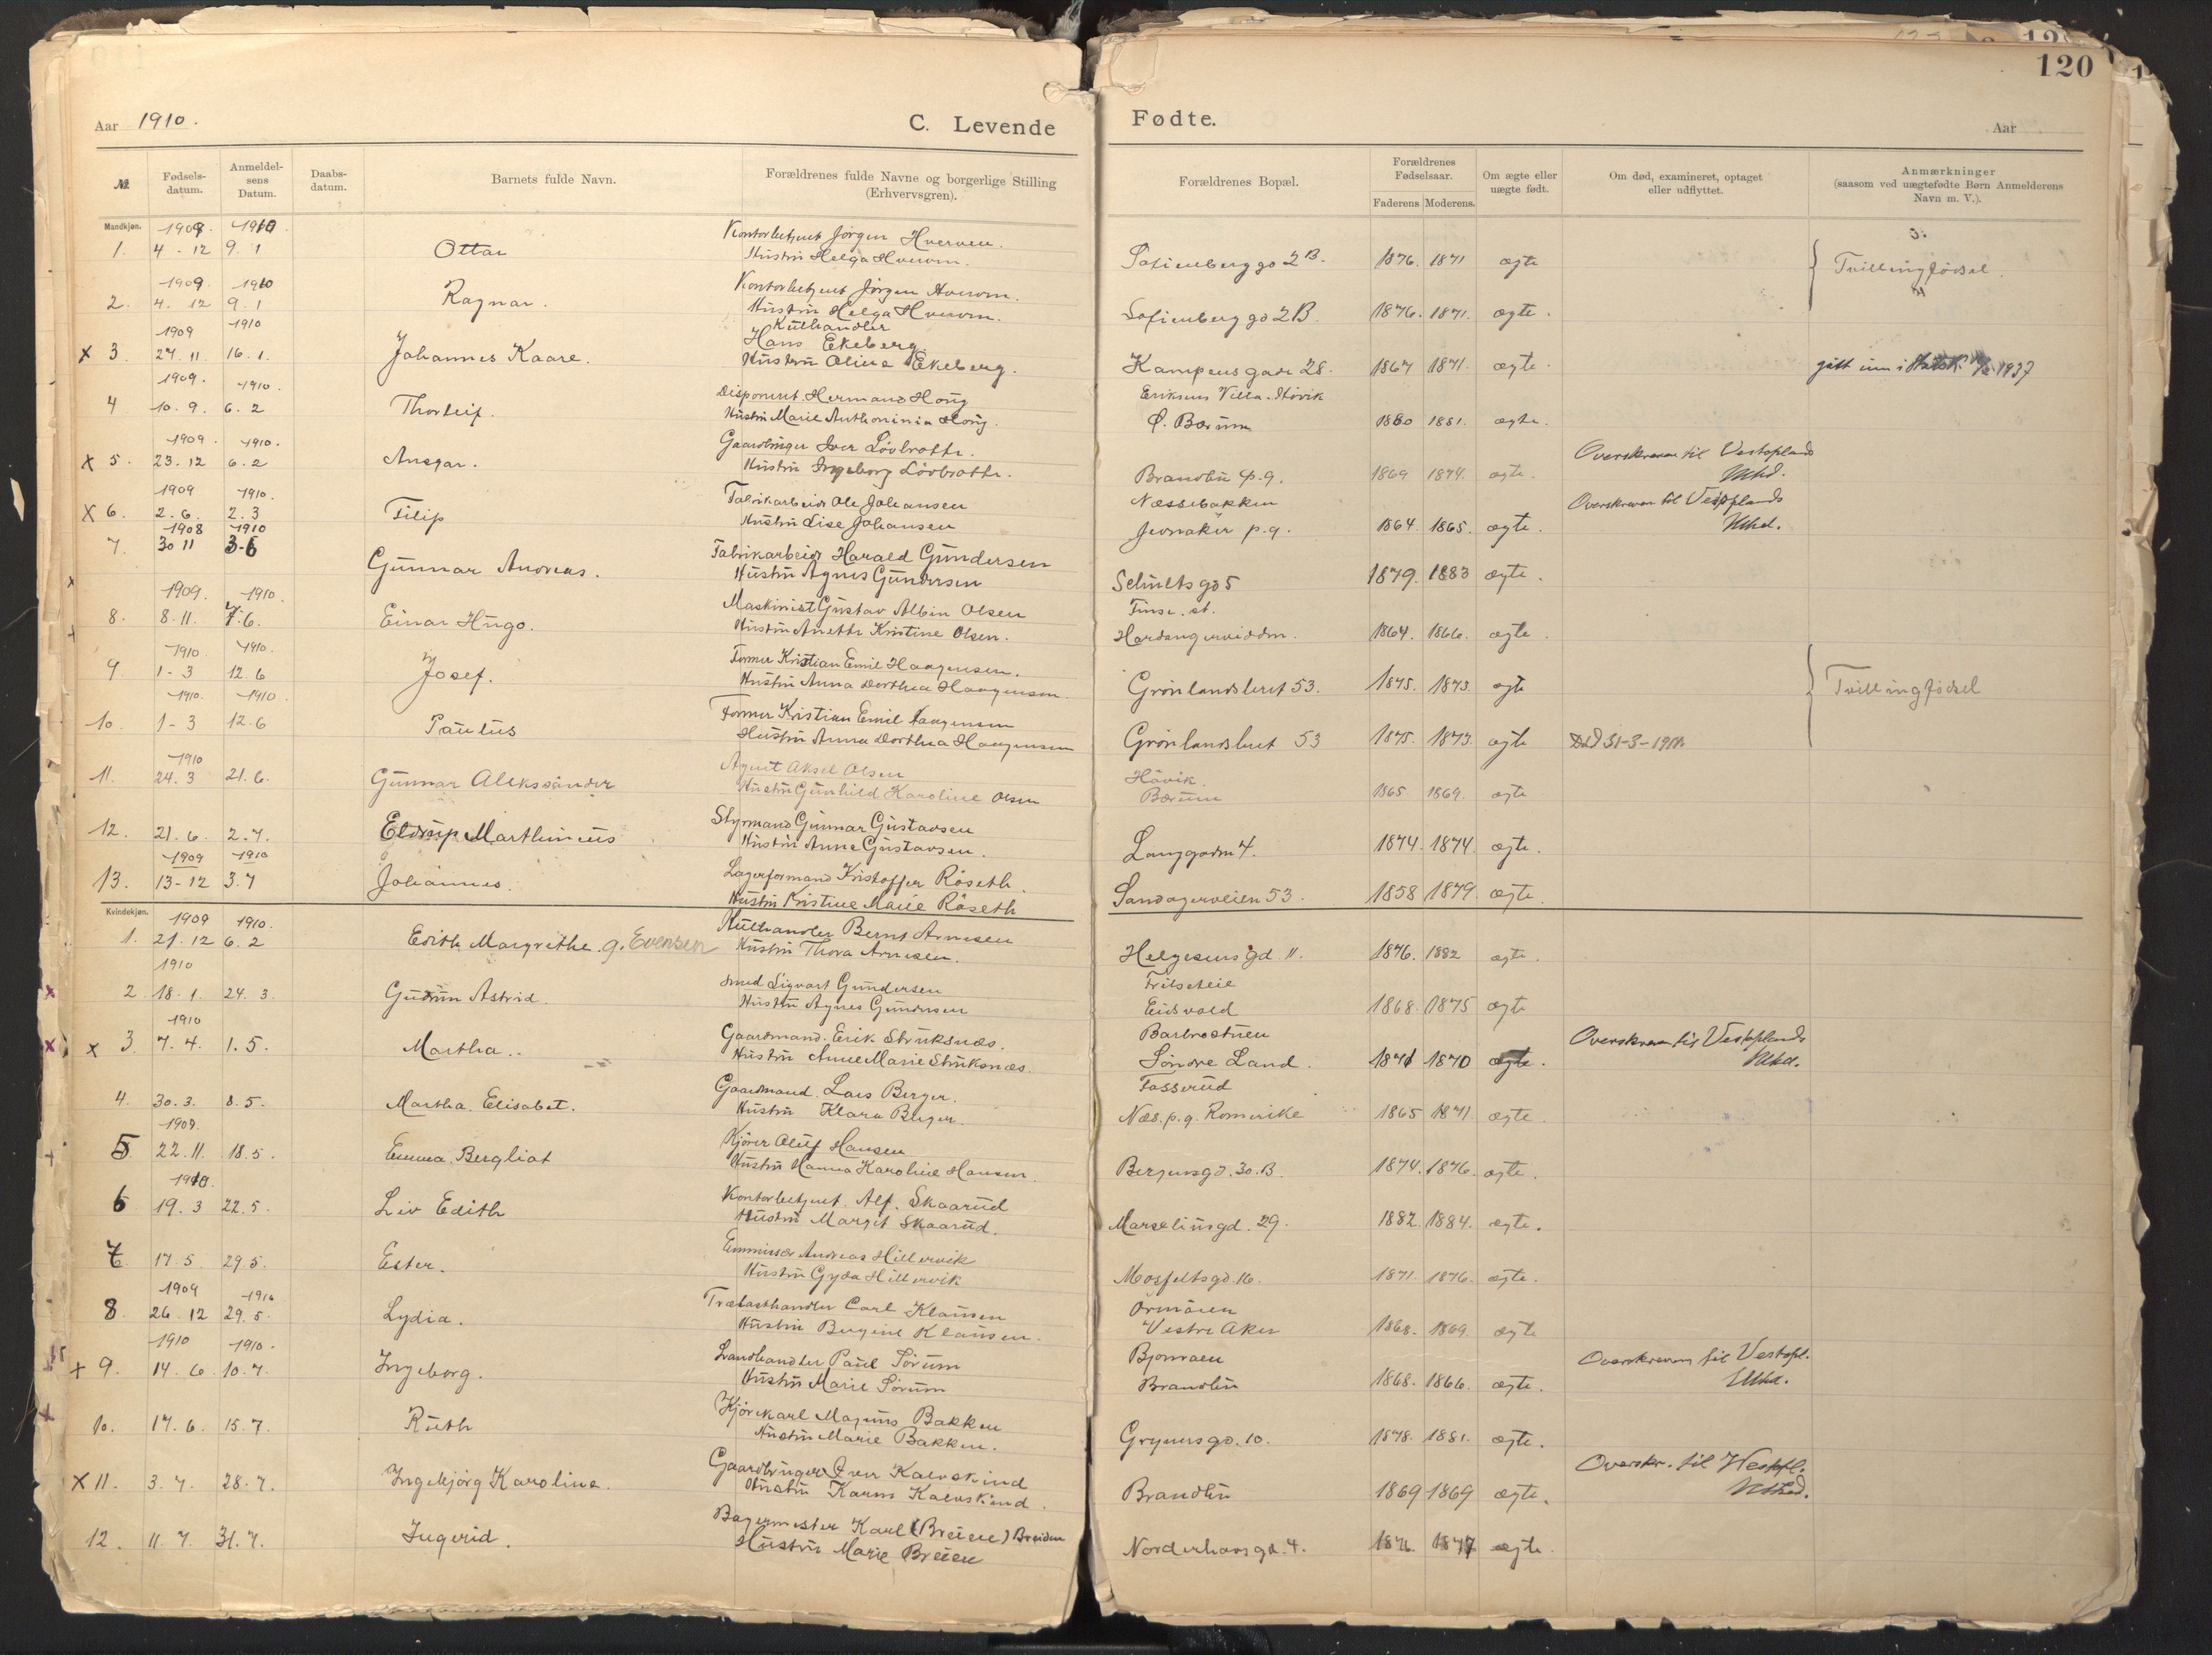 120
Aar 1910.
C. Levende Fødte.
Aar
№
Fødselsdatum.
Anmeldelsens Datum.
Daabsdatum.
Barnets fulde Navn.
Forældrenes fulde Navne og borgerlige Stilling (Erhvervsgren).
Forældrenes Bopæl.
Forældrenes Fødselsaar.
Faderens Moderens.
Om ægte eller uægte født.
Om død, examineret, optaget eller udflyttet.
Anmærkninger (saasom ved uægtefødte Børn Anmelderens Navn m. V.).
Mandkjøn. 1909. 1910.
Kontorbetjent Jörgen Hverven.
1. 4 - 12 9. 1 Ottar Hustru Helga Hverven. Sofienberggd 2B. 1876. 1871 ægte Tvillingfödsel.
1909. 1910 Kontorbetjent Jörgen Hverven.
2. 4. 12 9. 1 Ragnar. Hustru Helga Hverven. Sofienberggd 2B. 1876. 1871. ægte.
1909 1910 Kulhandler
Hans Ekeberg.
x 3. 27. 11. 16. 1. Johannes Kaare. Hustru Oline Ekeberg. Kampensgade 28. 1867 1871. ægte. gått inn i 1937
1909. 1910. Disponent Hermand Houg Eriksens Villa. Hövik
4 10. 9. 6. 2 Thorleif. Hustru Marie Anthoninia Houg. Ö. Bærum 1880 1881. ægte.
1909. 1910. Gaardbruger Iver Lövbrotte. Overskreven til Vestopland
x 5. 23. 12 6. 2 Ansgar. Hustru Ingeborg Lövbrotte. Brandbu p.g. 1869 1874. ægte. Mhd.
1909 1910. Fabrikarbeider Ole Johansen Næssebakken Overskreven til Vestoplands
x 6. 2. 6. 2. 3 Filip Hustru Lise Johansen Jevnaker p.g. 1864. 1865. ægte. Mhd.
1908 1910
7. 30 11 3-6 Gunnar Andreas. Fabrikarbeider Harald Gundersen
Hustru Agnes Gundersen Schultsgd 5 1879. 1883 ægte.
1909. 1910. Maskinist Gustav Albin Olsen Finse. st.
8. 8. 11. 7. 6. Einar Hugo. Hustru Anette Kristine Olsen. Hardangervidden. 1864. 1866. ægte.
1910. 1910. Former Kristian Emil Haagensen.
9 1 - 3 12. 6 Josef. Hustru Anna Dorthea Haagensen Grönlandsleret 53. 1875. 1873. ægte Tvillingfödsel
1910. 1910. Former Kristian Emil Haagensen
10. 1 - 3 12. 6 Paulus Hustru Anna Dorthea Haagensen Grönlandsleret 53 1875. 1873. ægte Död 31-3-1910.
1910 Agent Aksel Olsen Hövik
11. 24. 3 21. 6. Gunnar Aleksander Hustru Gunhild Karoline Olsen Bærum 1865 1869. ægte
Styrmand Gunnar Gustavsen
12. 21. 6. 2. 7. Eldrup Marthinius Hustru Anne Gustavsen. Langgaden 7. 1874. 1874. ægte.
1909 1910 Lagerformand Kristoffer Röseth.
13. 13-12 3. 7 Johannes. Hustru Kristine Marie Röseth Sandagerveien 53. 1858 1879. ægte.
Kvindekjøn. 1909 1910. Kulhandler Bernt Arnesen
1. 21. 12 6. 2 Edith Margrethe. g. Evensen Hustru Thora Arnesen. Helgesensgd. 11. 1876. 1882 ægte.
1910 Smed Sigvart Gundersen
2. 18. 1. 24. 3. Gudrun Astrid. Hustru Agnes Gundersen Eidsvold 1868. 1875 ægte
1910 Gaardmand. Erik Struksnæs. Overskreven til Vestoplands
x 3. 7. 4. 1. 5. Martha.. Hustru Anne Marie Struksnæs. Söndre Land. 1871 1870 ægte. Mhd.
Gaardmand. Lars Berger. Fosserud
4. 30. 3. 8. 5. Martha. Elisabet. Hustru Klara Berger. Næs. p.g. Romerike 1865 1871. ægte.
1909. Kjörer Oluf Hansen
5. 22. 11. 18. 5. Emma. Bergliot Hustru Hanna Karoline Hansen. Bergensgd. 30. B. 1874. 1876. ægte.
1910. Kontorbetjent. Alf. Skaarud
6 19. 3 22. 5. Liv Edith Hustru Margit Skaarud. Marseliusgd. 29. 1882. 1884. ægte.
Emmissær Andreas Hillervik
7. 17. 5. 29. 5. Ester. Hustru Gyda Hillervik Mosfeltsgd. 16. 1871. 1876. ægte.
1909 1910 Trælasthandler Carl Klausen Ormöien
8. 26. 12 29. 5. Lydia. Hustru Bergine Klausen. Vestre Aker 1868. 1869. ægte
1910 1910. Landhandler Paul Sörum Overskreven til Vestopl.
x 9. 14. 6 10. 7. Ingeborg. Hustru Marie Sörum Brandbu 1868. 1866. ægte. Mhd.
Kjörekarl Magnus Bakken
10. 17. 6. 15. 7. Ruth Hustru Marie Bakken. Grynersgd. 10. 1878. 1881. ægte.
Gaardbruger Iver Kalvskind Overskr. til Vestopl.
x 11. 3. 7. 28. 7. Ingebjörg Karoline. Hustru Karen Kalvskind. Brandbu 1869 1869 ægte. Mhd.
Bagermester Karl (Breien) Breiden
12. 11. 7. 31. 7. Ingerid. Hustru Marie Breien Norderhovsgd. 4. 1876. 1877 ægte.